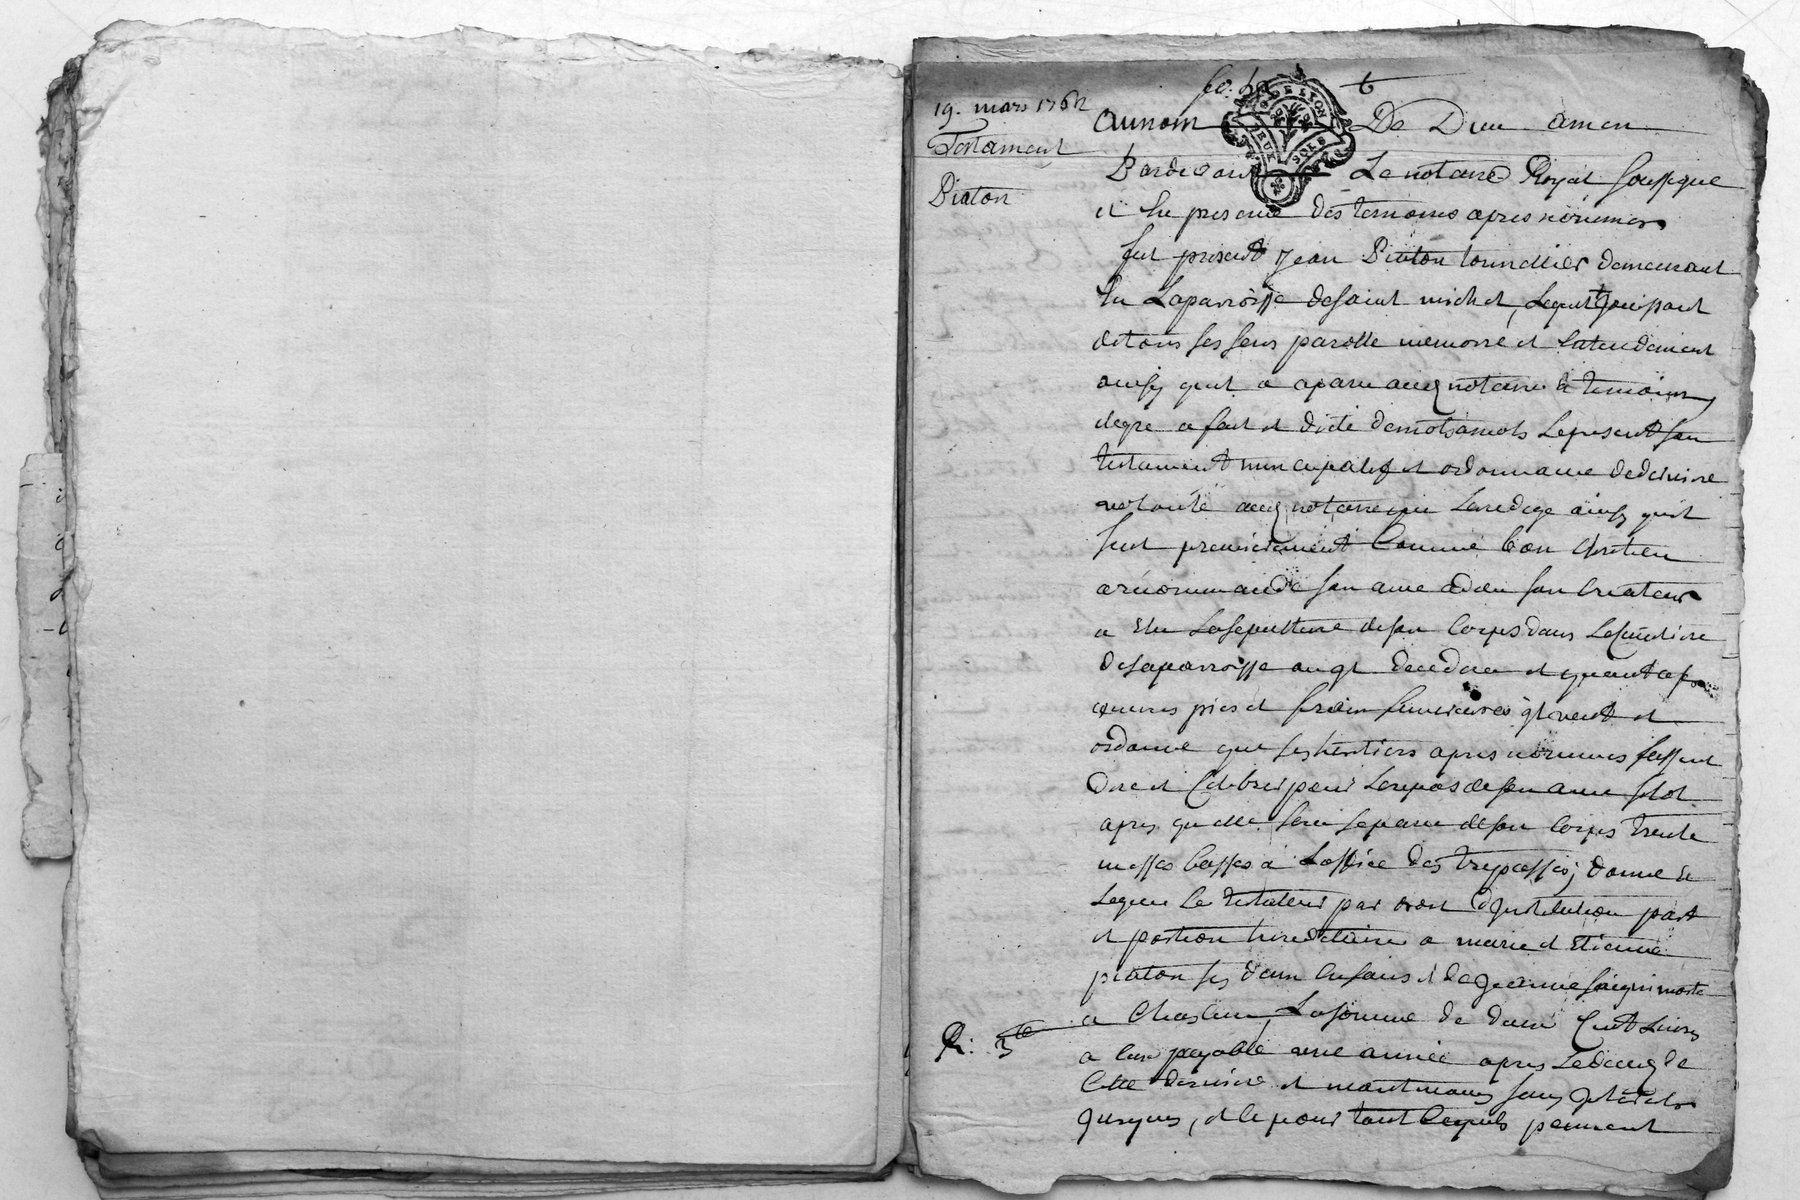 19. mars 1762
Testament
Piaton
fo. t
DE LYON
DEUX SOLS
Au nom De Dieu amen
Pardevant Le notaire Royal soussigné
et En presence des temoins apres nommes
fut present Jean Piaton tonnellier demeurant
En Laparroisse desaint michel, Lequel jouissant
detous ses sens parolle memoire et Entendement
ainsy quil a aparu audt notaire Et temoins
degré a fait et dicté demotsamots Lepresent son
testament nuncupatif et ordonnance dederniere
volonté audt notaire qui Laredigé ainsy quil
suit premierement Comme bon Chretien
arecommandé son ame adieu son Createur
a Elu Lasepulture deson Corps dans Lecimetiere
desaparroisse ou qt decedera et quant a ses
œuvres pies et frais funeraires qt veut et
ordonne que ses heritiers apres nommés fassent
Dire et Celebrer pour Lerepos deson ame sitot
apres quelle sera separée deson Corps trente
messes basses a Loffice des trepassés; donne Et
Legue Le testateur par droit dinstitution part
et portion hereditaire a marie et Etienne
piaton ses deux Enfans et de Jeanne
a Lasomme de deux Cent Livres
a Eux payable une année apres Ledeces de
Cette derniere et maintenant sans interets
jusques, et ce pour tout Cequils peuvent